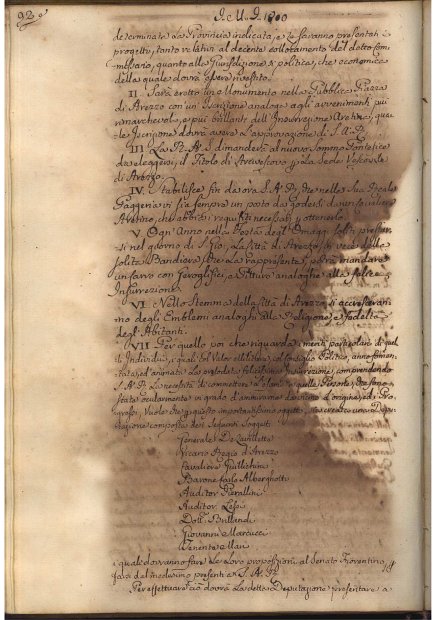 92
I. M. I. 1800
determinata La Provincia indicata, e Le saranno presentati
progetti, tanto relativi al decente collocamento del detto Com-
missario, quanto alla Giurisdizione, e politica, che economica
della quale dovrà essere rivestito.
II. Sarà eretto un Monumento nella Pubblica Piazza
di Arezzo con un' Iscrizione analoga agli avvenimenti più
rimarchevoli, e più brillanti dell' Insurrezione Aretina, qua-
le Iscrizione dovrà avere L'approvazione di S. A. R.
III La R. A. S. dimanderà al nuovo Sommo Pontefice
da eleggersi, il Titolo di Arcivescovo per La Sede Vescovile
di Arezzo.
IV. Stabilisce fin da ora S. A. R., che nella Sua Reale
Paggeria vi sia sempre un posto da godersi da un Cavaliere
Aretino, che abbia i requisiti necessari per ottenerlo.
V. Ogni Anno nella Festa degl' Omaggi soliti prestar-
si nel giorno di S. Gio:, La Città di Arezzo, in vece della
solita Bandiera, che La rappresenta, potrà mandare
un Carro con Geroglifici, e Pitture analoghe alla felice
Insurrezione.
VI Nello Stemma della Città di Arezzo si accresceran-
no degli Emblemi analoghi alla Religione, e fedeltà
degli Abitanti.
VII Per quello poi che riguarda i meriti particolari di quel-
li Individui, i quali col Valor militare, col consiglio Politico, anno fomen-
tata, ed animata La prelodata felicissima Insurrezione, comprendendo
S. A. R. La necessità di commettere l'esame a quelle Persone, che sono
state ocularmente in grado d'ammirarne da vicino L'origine, ed i Pro-
gressi, Vuole che per questo importantissimo oggetto, resti creata una Depu-
tazione composta dei Seguenti Soggetti
Generale De
Vicario Regio di Arezzo
Cavaliere Guillichini
Barone Carlo Alberghotti
Auditor Pierallini
Auditor Lessi
Dott.
Giovanni Marcucci
Tenente Mari
i quali dovranno fare Le Loro proposizioni al Senato Fiorentino
farsi dal medesimo presenti a S. A. R.
Per effettuare ciò dovrà La detta Deputazione presentare a